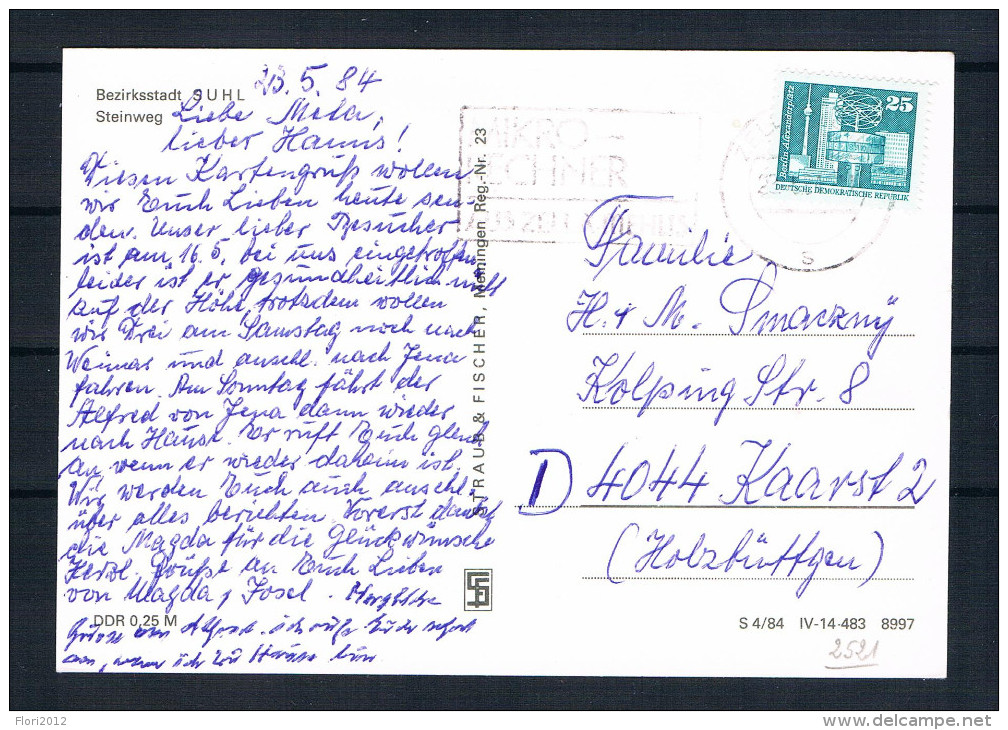 Bezirksstadt SUHL
Steinweg
23.5.84
Liebe Meta,
lieber Hanns!
Diesen Kartengruß wollen
wir Euch Lieben heute sen-
den. Unser lieber Besucher
ist am 16.5. bei uns eingetroffen,
leider ist er gesundheitlich nicht
auf der Höhe, trotzdem wollen
wir Drei am Samstag noch nach
Weimar und anschl. nach Jena
fahren. Am Sonntag fährt der
Alfred von Jena dann wieder
nach Hause. Er ruft Euch gleich
an, wenn er wieder daheim ist.
Wir werden Euch auch anschl.
über alles berichten. Vorerst dankt
die Magda für die Glückwünsche
Herzl. Grüße an Euch Lieben
von Magda, Josef. Herzliche
Grüße von Alfred. ich rufe Euch sofort
an, wenn ich zu Hause bin
DDR 0,25 M
STRAUB & FISCHER, Meiningen Reg.-Nr. 23
MIKRO-
RECHNER
25
Berlin, Alexanderplatz
DEUTSCHE DEMOKRATISCHE REPUBLIK
s
Familie
H. + M. Smaczny
Kolping Str. 8
D 4044 Kaarst 2
(Holzbüttgen)
S 4/84 IV-14-483 8997
2521
Flori2012
delcampe.net